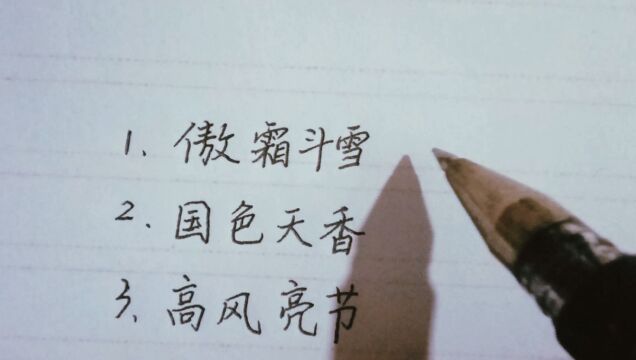 1、傲霜斗雪
2、国色天香
3、高风亮节